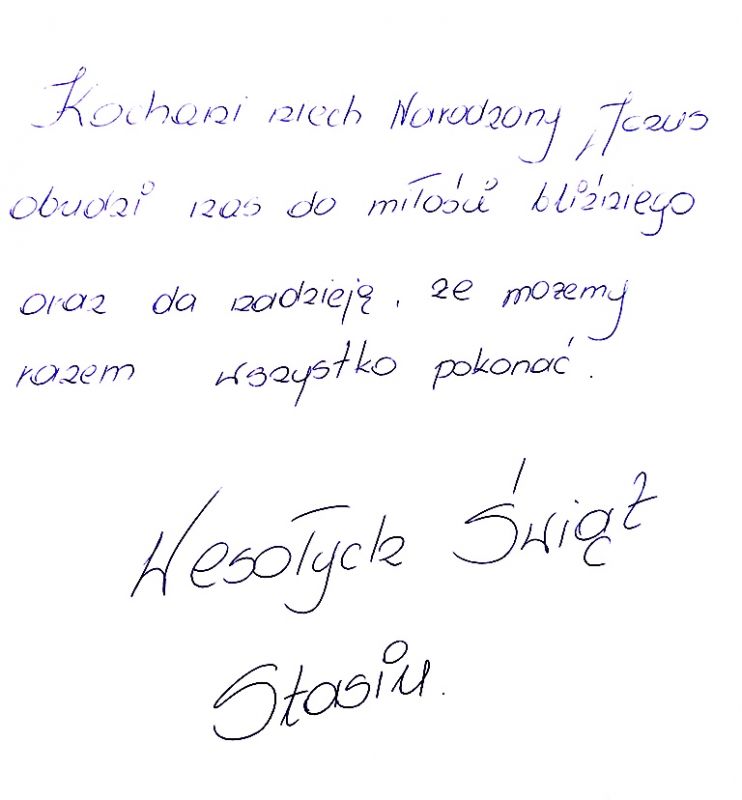 Kochani niech Narodzony Jezus
obudzi nas do miłości bliźniego
oraz da nadzieję, że możemy
razem wszystko pokonać.
Wesołych Świąt
Stasiu.